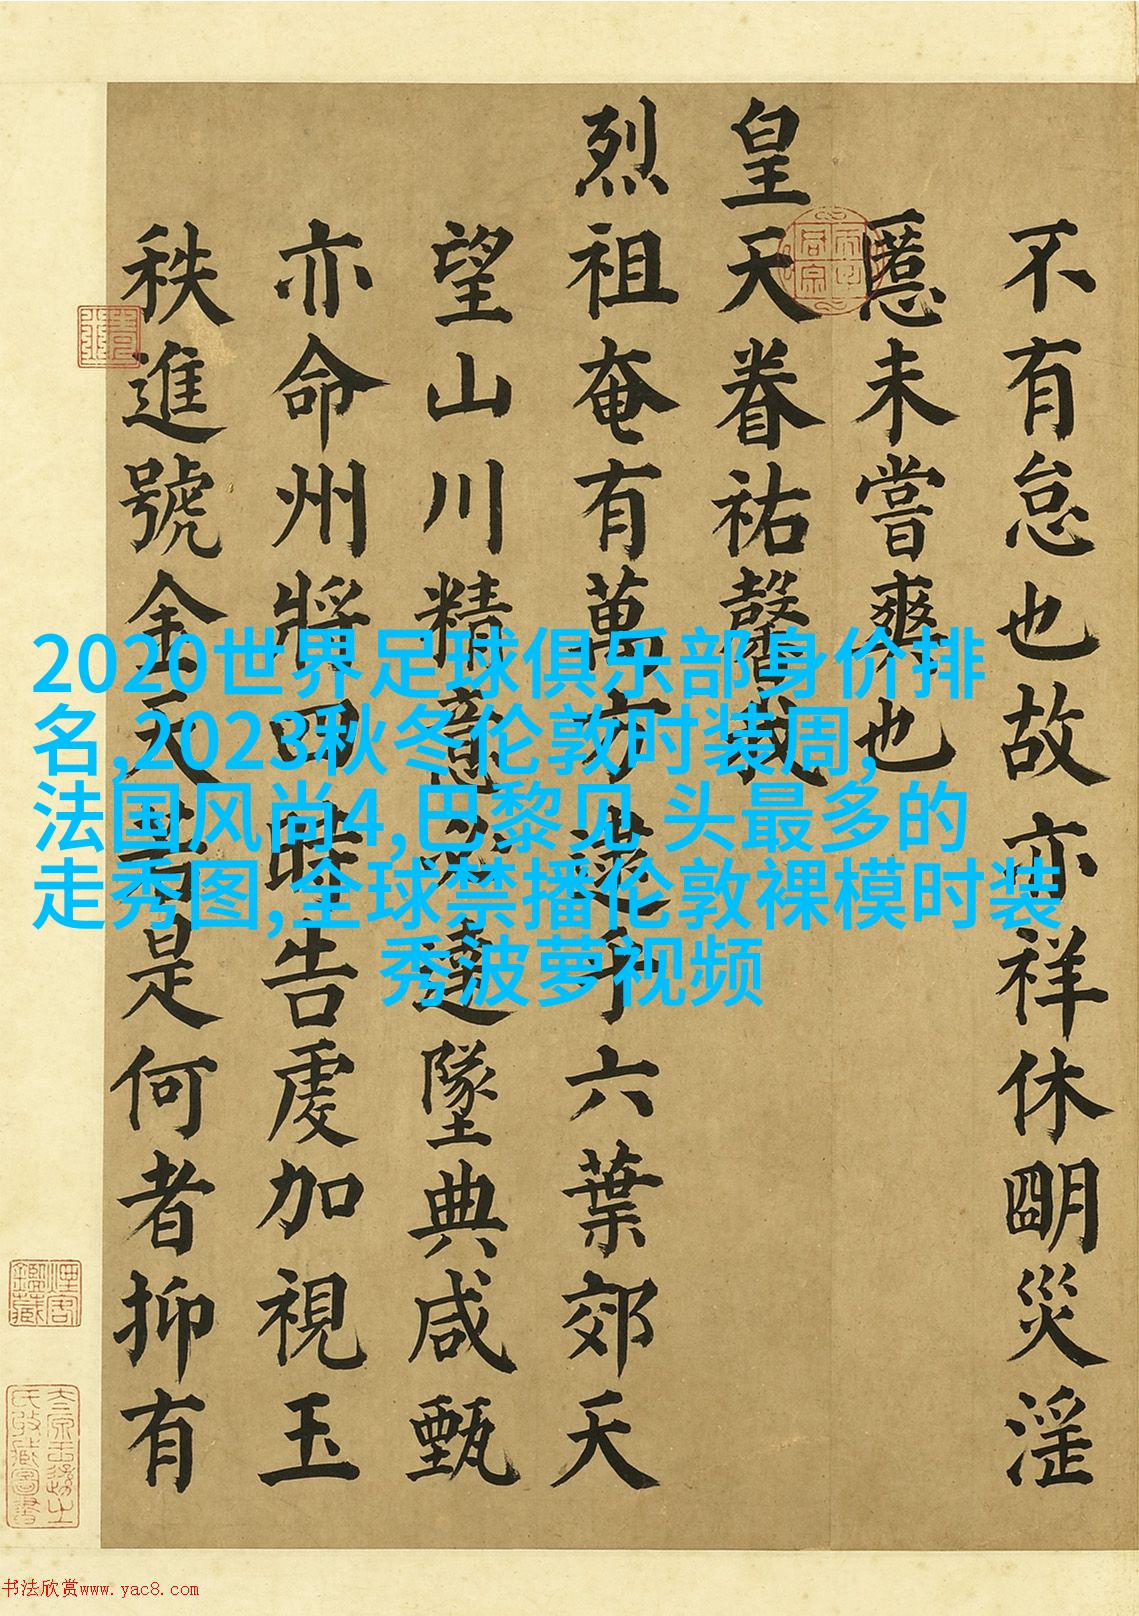 不有怠也故亦祥休朙災淫
慝未嘗爽也
皇天眷祐馨我
烈祖奄有萬方逮乎六葉郊天
望山川精意必達墜典咸甄
亦命州將四時告虔加視玉
秩進號金天若是何者抑有
2020世界足球俱乐部身价排
名,2023秋冬伦敦时装周,
法国风尚4,巴黎见 头最多的
走秀图,全球禁播伦敦裸模时装
秀波萝视频
书法欣赏www.yac8.com